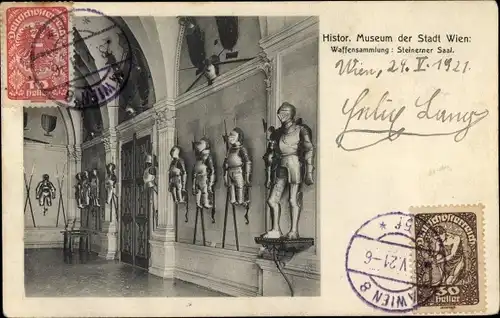 Deutschösterreich
Heller
WIEN
Histor. Museum der Stadt Wien:
Waffensammlung: Steinerner Saal.
Wien, 24. V. 1921.
Felix Lang
Deutschösterreich
30
Heller
V.21-6
WIEN 8